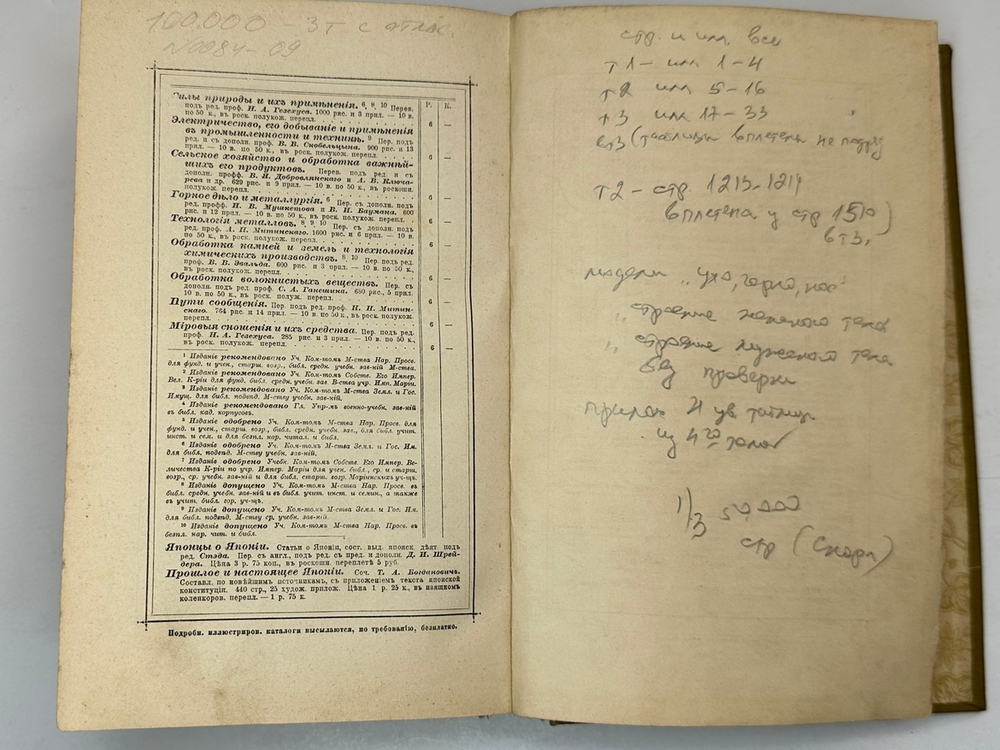 100.000 – 3т с атлас.
N0084-09
Силы природы и ихъ примѣненія. 6, 8, 10 Перев.
подъ ред. проф. Н. А. Гезехуса. 1000 рис. и 3 прил. — 10 в.
по 50 к., въ роск. полукож. перепл.
Электричество, его добываніе и примѣненія
въ промышленности и техникѣ. 9 Пер. подъ
ред. и съ дополн. проф. В. В. Скобельцына. 900 рис. и 13
прил. — 10 в. по 50 к., въ роск. полукож. перепл.
Сельское хозяйство и обработка важнѣй-
шихъ его продуктовъ. Перев. подъ ред. и съ
дополн. проф. В. Я. Добровлянскаго и А. В. Ключа-
рева и др. 629 рис. и 9 прил. — 10 в. по 50 к., въ роскошн.
полукож. перепл.
Горное дѣло и металлургія. 6 Пер. съ дополн. подъ
ред. профф. И. В. Мушкетова и В. И. Баумана. 600
рис. и 12 прил. — 10 в. по 50 к., въ роск. полукож. перепл.
Технологія металловъ. 8, 9, 10 Пер. съ дополн. подъ
ред. проф. А. Н. Митинскаго. 1600 рис. и 6 прил. — 10 в.
по 50 к., въ роск. полукож. перепл.
Обработка камней и земель и технологія
химическихъ производствъ. 8, 10 Пер. подъ ред.
проф. В. В. Эвальда. 600 рис. и 3 прил. — 10 в. по 50 к.,
въ роск. полукож. перепл.
Обработка волокнистыхъ веществъ. Пер. съ
дополн. подъ ред. проф. С. А. Ганешина. 680 рис., 5 прил.
10 в. по 50 к., въ роск. полуж. перепл.
Пути сообщенія. Пер. подъ ред. проф. Н. Н. Митин-
скаго. 764 рис. и 14 прил. — 10 в. по 50 к., въ роск. полукож.
перепл.
Міровыя сношенія и ихъ средства. Пер. подъ ред.
проф. Н. А. Гезехуса. 285 рис. и 3 прил. — 10 в. по 50 к.,
въ роск. полукож. перепл.
Р. К.
6 —
6 —
6 —
6 —
6 —
6 —
6 —
6 —
6 —
1 Изданіе рекомендовано Уч. Ком-томъ М-ства Нар. Просв.
для фунд. и учен., старш. возр., библ. средн. учебн. зав-ній М-ства.
2 Изданіе рекомендовано Учебн. Ком-томъ Собств. Его Импер.
Вел. К-ріи для фунд. библ. средн. учебн. зав. В-ства учр. Имп. Маріи.
3 Изданіе рекомендовано Уч. Ком-томъ М-ства Земл. и Гос.
Имущ. для библ. подвѣд. М-ству учебн. зав-ній.
4 Изданіе рекомендовано Гл. Упр-мъ военно-учебн. зав-ній
въ библ. кад. корпусовъ.
5 Изданіе одобрено Уч. Ком-томъ М-ства Нар. Просв. для
фунд. и учен., старш. возр., библ. средн. учебн. зав., для библ. учит.
инст. и сем. и для безпл. нар. читал. и библ.
6 Изданіе одобрено Уч. Ком-томъ М-ства Земл. и Гос. Им.
для библ. подвѣд. М-ству учебн. зав-ній.
7 Изданіе одобрено Учебн. Ком-томъ Собств. Его Импер. Ве-
личества К-ріи по учр. Импер. Маріи для учен. библ., ср. и старш.
возр., ср. учебн. зав-ній и для библ. старш. возр. Маріинскихъ уч-щъ.
8 Изданіе допущено Уч. Ком-томъ М-ства Нар. Просв. въ
библ. средн. учебн. зав-ній и въ библ. учит. инст. и семин., а также
въ учит. библ. гор. уч-щъ.
9 Изданіе допущено Уч. Ком-томъ М-ства Земл. и Гос. Им.
для библ. подвѣд. М-ству ср. учебн. зав-ній.
10 Изданіе допущено Уч. Ком-томъ М-ства Нар. Просв. въ
безпл. нар. чит. и библ.
Японцы о Японіи. Статьи о Японіи, сост. выд. японск. дѣят. подъ
ред. Стэда. Пер. съ англ., подъ ред. съ пред. и дополн. Д. И. Шрей-
дера. Цѣна 3 р. 75 коп., въ роскошн. переплетѣ 5 руб.
Прошлое и настоящее Японіи. Соч. Т. А. Богдановичъ.
Составл. по новѣйшимъ источникамъ, съ приложеніемъ текста японской
конституціи. 440 стр., 25 худож. прилож. Цѣна 1 р. 25 к., въ изящном
коленкоров. перепл. — 1 р. 75 к.
Подробн. иллюстриров. каталоги высылаются, по требованію, безплатно.
стр. и илл все
т1 – илл 1-4
т2 илл 5-16
т3 илл 17-33
в т3 (таблицы вплетены не подряд
т2 – стр. 1213-1214
вплетена у стр 1510)
в т3.
модели „ухо, горло, нос"
„строение женского тела
„строение мужского тела
без проверки
прилож 4 цв таблиц
из 4го тома
1/3 50 000
стр (Скорп)